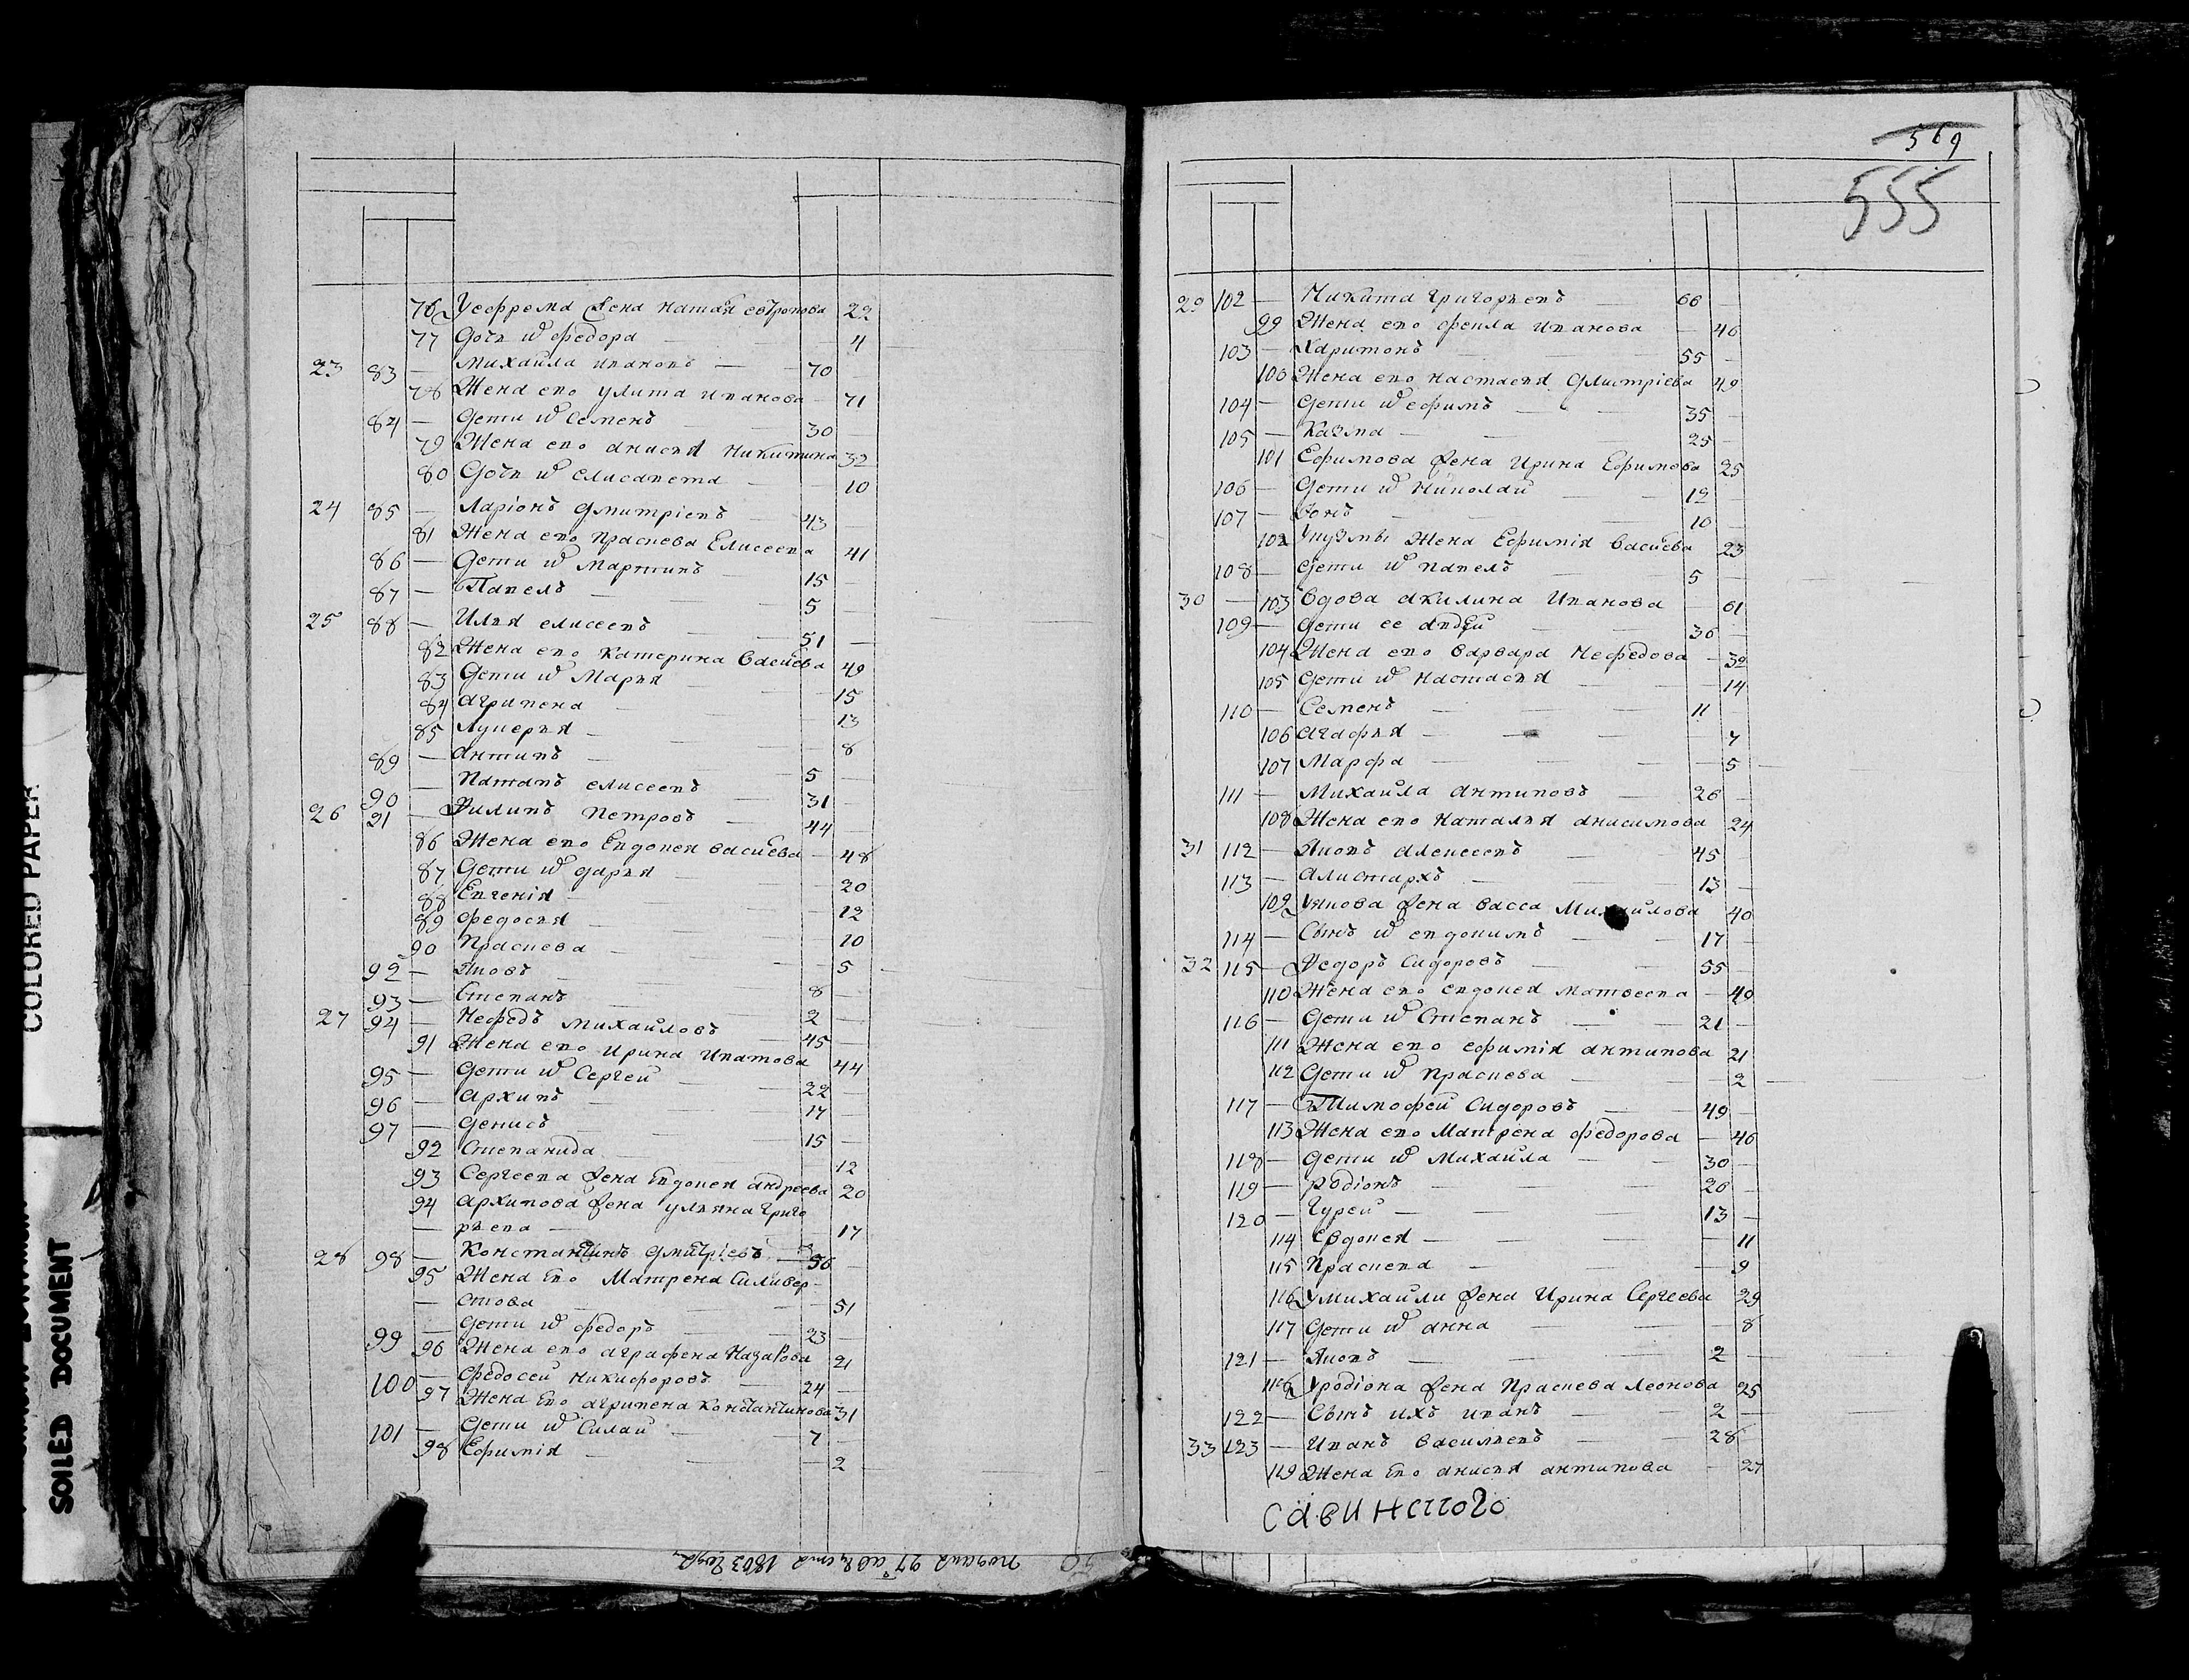 76 Уефрема жена наталя евтропова 22
77 Дочь Ѿ федора 4
23 83 — Михаила иванов — 70
78 Жена ево улита иванова — 71
84 — Дети Ѿ Семенъ 30
79 Жена ево анисья Никитина 32
80 Дочь Ѿ Елисавета 10
24 85 — Ларіонъ дмитріевъ 43
81 Жена ево Прасковя Елисеева 41
86 — Дети Ѿ Мартинъ 15
87 — Павелъ 5
25 88 — Илья елисеевъ 51
82 Жена ево катерина васиева 49
83 Дети Ѿ Марья 15
84 агрипена 13
85 Лукерья 8
89 — антипъ 5
90 — Патапъ елисеевъ 31
26 91 — Филипъ Петровъ 44
86 Жена ево Евдокея васиева — 48
87 Дети Ѿ дарья 20
88 Евгенія 12
89 федосья 10
90 Праскева 5
92 — Яковъ 8
93 — Степанъ 2
27 94 — Нефедъ михайловъ 45
91 Жена ево ирина ипатова 44
95 — Дети Ѿ Сергей 22
96 — архипъ 17
97 — денисъ 15
92 Степанида 12
93 Сергеева жена Евдокея андреева 20
94 архипова жена ульяна григо
— рьева — 17
28 98 — Константинъ дмитріевъ — 56
95 Жена Ево Матрена Силивер-
— стова 51
99 — Дети Ѿ федоръ 23
96 Жена ево аграфена Назарова 21
100 — федосей никифоровъ 24
97 Жена Ево агрипена константинова 31
101 — Дети Ѿ Силай 7
98 Ефимія 2
поданa 27 августа 1803 году
569
555
29 102 — Никита григорьевъ 66 —
99 Жена ево фекла иванова — 46
103 — Харитонъ 55 —
100 Жена ево настасья дмитріева 49
104 — Дети Ѿ ефимъ 35 —
105 — Казма 25 —
101 Ефимова жена Ирина Ефимова 25
106 — Дети Ѿ Николай 12
107 — Іонъ 10 —
102 Укузмы жена Ефимія васиева 23
108 — Дети Ѿ павелъ 5
30 — 103 Вдова акилина Иванова — 61
109 — Дети ее андрей 36 —
104 Жена ево варвара Нефедова — 32
105 Дети Ѿ настасья 14
110 — Семенъ 11
106 агафья 7
107 Марфа 5
111 — Михаила антиповъ 26 —
108 Жена ево наталья анисимова 24
31 112 — Яковъ алексеевъ 45 —
113 — алистархъ 13 —
109 Уякова жена васса Михаилова 40
114 — Сынъ Ѿ евдокимъ 17 —
32 115 — Федоръ Сидоровъ 55 —
110 Жена ево евдокея матвеева — 49
116 — Дети Ѿ Степанъ 21 —
111 Жена ево ефимія антипова 21
112 Дети Ѿ Праскева 2
117 — Тимофей Сидоровъ 49 —
113 Жена ево Матрена федорова — 46
118 — Дети Ѿ Михаила 30 —
119 — родіонъ 26 —
120 — Гурей 13 —
114 Евдокея 11
115 Праскева 9
116 Умихаили жена Ирина Сергеева 29
117 Дети Ѿ анна 8
121 — Яковъ 2 —
118 Уродіона жена Праскева Леонова 25
122 — Сынъ ихъ иванъ 2 —
33 123 — Иванъ васильевъ 28
119 Жена Ево анисья антипова 27
савинского
COLORED PAPER
SOILED DOCUMENT